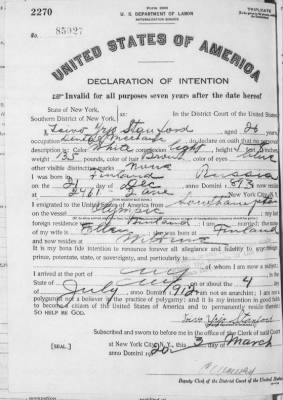 2270
Form 2203
U. S. DEPARTMENT OF LABOR
NATURALIZATION SERVICE
TRIPLICATE
No. 85027
UNITED STATES OF AMERICA
DECLARATION OF INTENTION
Invalid for all purposes seven years after the date hereof
State of New York,
Southern District of New York,
ss:
In the District Court of the United States.
Stanford aged 26 years,
occupation Dental Mechanic do declare on oath that my personal
description is: Color White complexion light height feet inches,
weight 135 pounds, color of hair Brown color of eyes blue
other visible distinctive marks None
I was born in Finland Russia
on the day of Dec anno Domini I now reside
at New York City, N. Y.
I emigrated to the United States of America from Southampton
on the vessel Olympic
foreign residence was Finland I am married; the name
of my wife is Ellen Finland
and now resides at
It is my bona fide intention to renounce forever all allegiance and fidelity to any foreign
prince, potentate, state, or sovereignty, and particularly to
of whom I am now a subject.
I arrived at the port of NY in the
State of NY on or about the 4 day
of July anno Domini 1912 I am not an anarchist; I am not a
polygamist nor a believer in the practice of polygamy; and it is my intention in good faith
to become a citizen of the United States of America and to permanently reside therein:
SO HELP ME GOD.
Stanford
Subscribed and sworn to before me in the office of the Clerk of said Court
[SEAL.]
at New York City, N. Y., this 3 day of March
anno Domini 1920
Deputy Clerk of the District Court of the United States